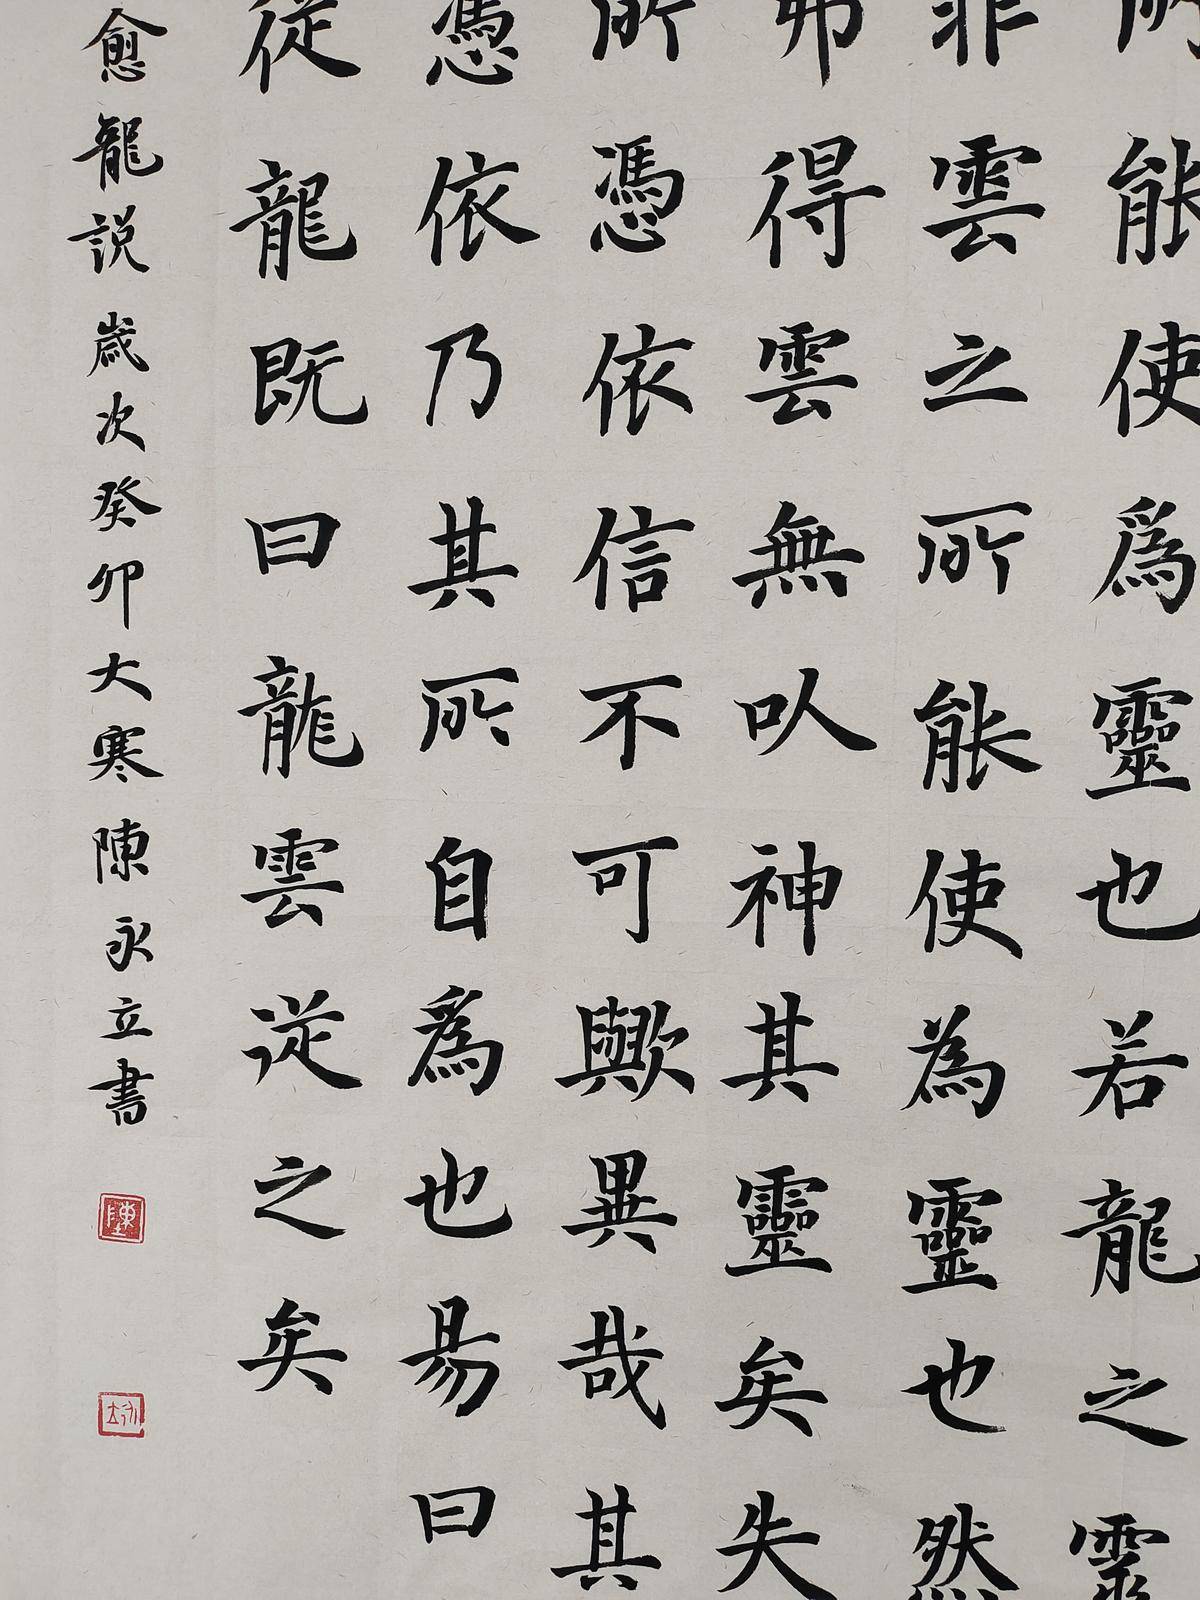 所能使爲靈也若龍之靈
非雲之所能使為靈也然
弗得雲無以神其靈矣失
所憑依信不可歟異哉其
憑依乃其所自爲也易曰
從龍既曰龍雲從之矣
愈龍説歲次癸卯大寒陳永立書
陳
永立